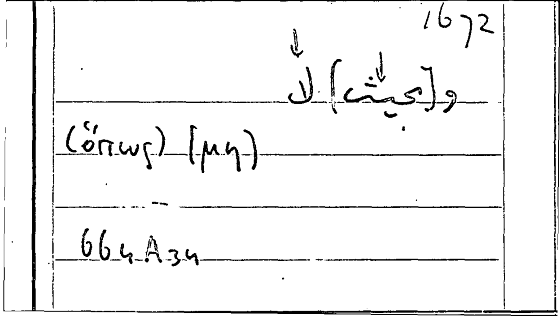 1672
و[بحيث] لا
(ὅπως) [μη)
664A34